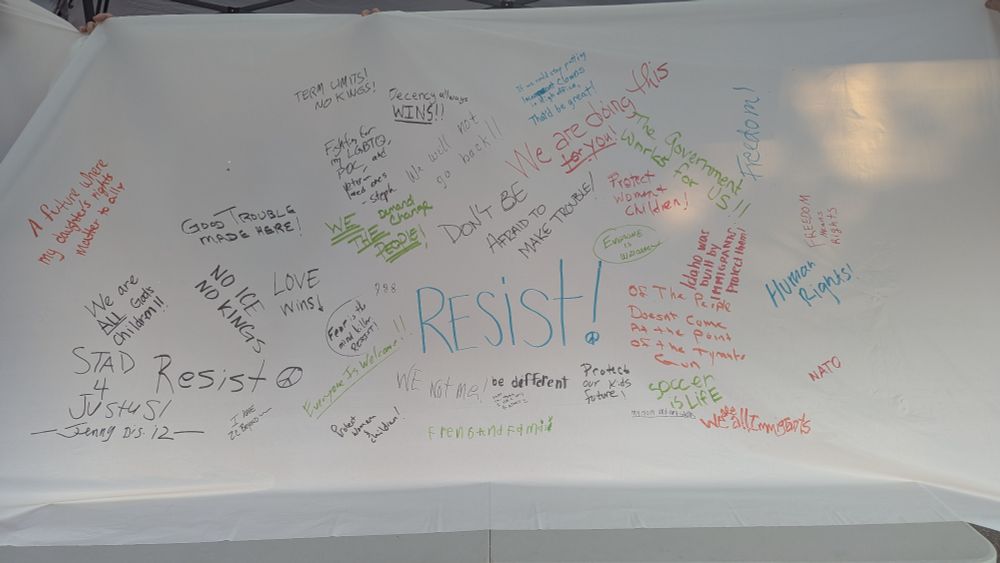 TERM LIMITS!
NO KINGS!
Decency always
WINS!!
If we could stop putting
Clowns
in high office,
That'd be great!
We are doing this
for you!
The Government
Works for
US!!
Freedom!
Fighting for
my LGBTQ,
POC, and
loved ones
- Steph
We will not
go back!!
A future where
my daughter's rights
matter to all
GOOD TROUBLE
MADE HERE!
WE Demand
THE Change
PEOPLE!
DON'T BE
AFRAID TO
MAKE TROUBLE!
Protect
Women &
Children!
Everyone is
Welcome
FREEDOM
Means
Rights
Idaho was
built by
IMMIGRANTS
Protect them!
Human
Rights!
We are
ALL Gods
Children!!
NO ICE
NO KINGS
LOVE
Wins!
Fear is the
mind killer
RESIST!
RESIST!
Of The People
Doesn't Come
At the Point
Of the Tyrants
Gun
STAD
4
JUSTUS!
Jenny Dis. 12
Resist
Everyone Is Welcome!!
WE Not me!
be different
Protect
our kids
future!
SOCCER
is LiFE
NATO
I ARE
Protect
women &
children!
Frens and Famii
We are all Immigrants